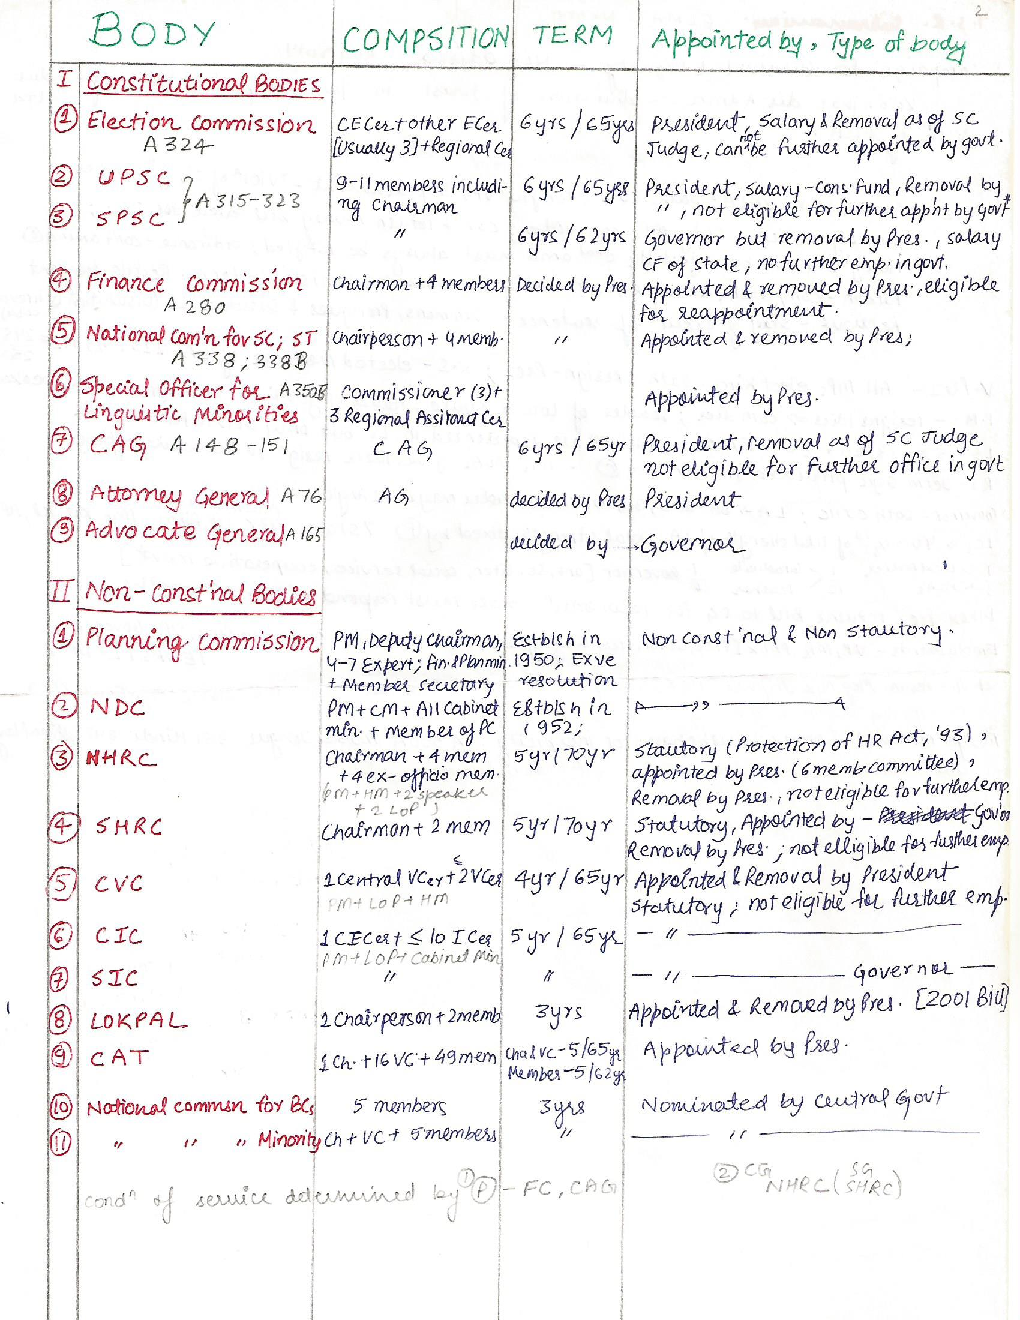 2
BODY COMPSITION TERM Appointed by, Type of body
I Constitutional BODIES
① Election Commission CECer + other ECer 6yrs / 65yrs President, Salary & Removal as of SC
A 324 [Usually 3] + Regional Cer Judge, can not be further appointed by govt.
② UPSC 9-11 members includi- 6 yrs / 65yrs President, salary - Cons. Fund, Removal by
A 315-323 ng Chairman " , not eligible for further app'nt by Govt
③ SPSC " 6yrs / 62yrs Governor but removal by Pres., salary
CF of state, no further emp. in govt.
④ Finance Commission Chairman + 4 members Decided by Pres. Appointed & removed by Pres., eligible
A 280 for reappointment.
⑤ National Com'n for SC; ST Chairperson + 4 memb. " Appointed & removed by Pres;
A 338 ; 338B
⑥ Special Officer for A350B Commissioner (3) + Appointed by Pres.
Linguistic Minorities 3 Regional Assitant Cer
⑦ CAG A 148-151 CAG 6yrs / 65yr President, removal as of SC Judge
not eligible for Further office in govt
⑧ Attorney General A76 AG decided by Pres President
⑨ Advocate General A 165 decided by → Governor
II Non-Const'nal Bodies
① Planning Commission PM, Deputy Chairman, Estblsh in Non Const'nal & Non Stautory.
4-7 Expert; Fin & Plan min. 1950; Exve
+ Member Secretary resolution
② NDC PM + CM + All Cabinet Estblsh in "
min. + Member of PC 1952;
③ NHRC Chairman + 4 mem 5yr/70yr Statutory (Protection of HR Act, '93),
+ 4 ex-officio mem. appointed by Pres. (6 memb committee),
PM + HM + 2 speaker Removal by Pres., not eligible for further emp.
+ 2 LOP)
④ SHRC Chairman + 2 mem 5yr/70yr Statutory, Appointed by - President Gov'n
Removal by Pres.; not elligible for further emp
⑤ CVC 1 Central VCer + ≤ 2 VCer 4yr / 65yr Appointed & Removal by President
PM + LOP + HM Statutory; not eligible for further emp.
⑥ CIC 1 CECer + ≤ 10 ICer 5 yr / 65 yr — " —
PM + LOP + Cabinet Min
⑦ SIC " " — " — Governor —
⑧ LOKPAL 1 Chairperson + 2 memb 3yrs Appointed & Removed by Pres. [2001 Bill]
⑨ CAT 1 Ch. + 16 VC + 49 mem Cha & VC - 5/65yr Appointed by Pres.
Member - 5/62yr
⑩ National commsn for BCs 5 members 3yrs Nominated by Central Govt
⑪ " " " Minority Ch + VC + 5 members " — " —
condn of service determined by ① Ⓟ - FC, CAG ② CG NHRC (SG SHRC)